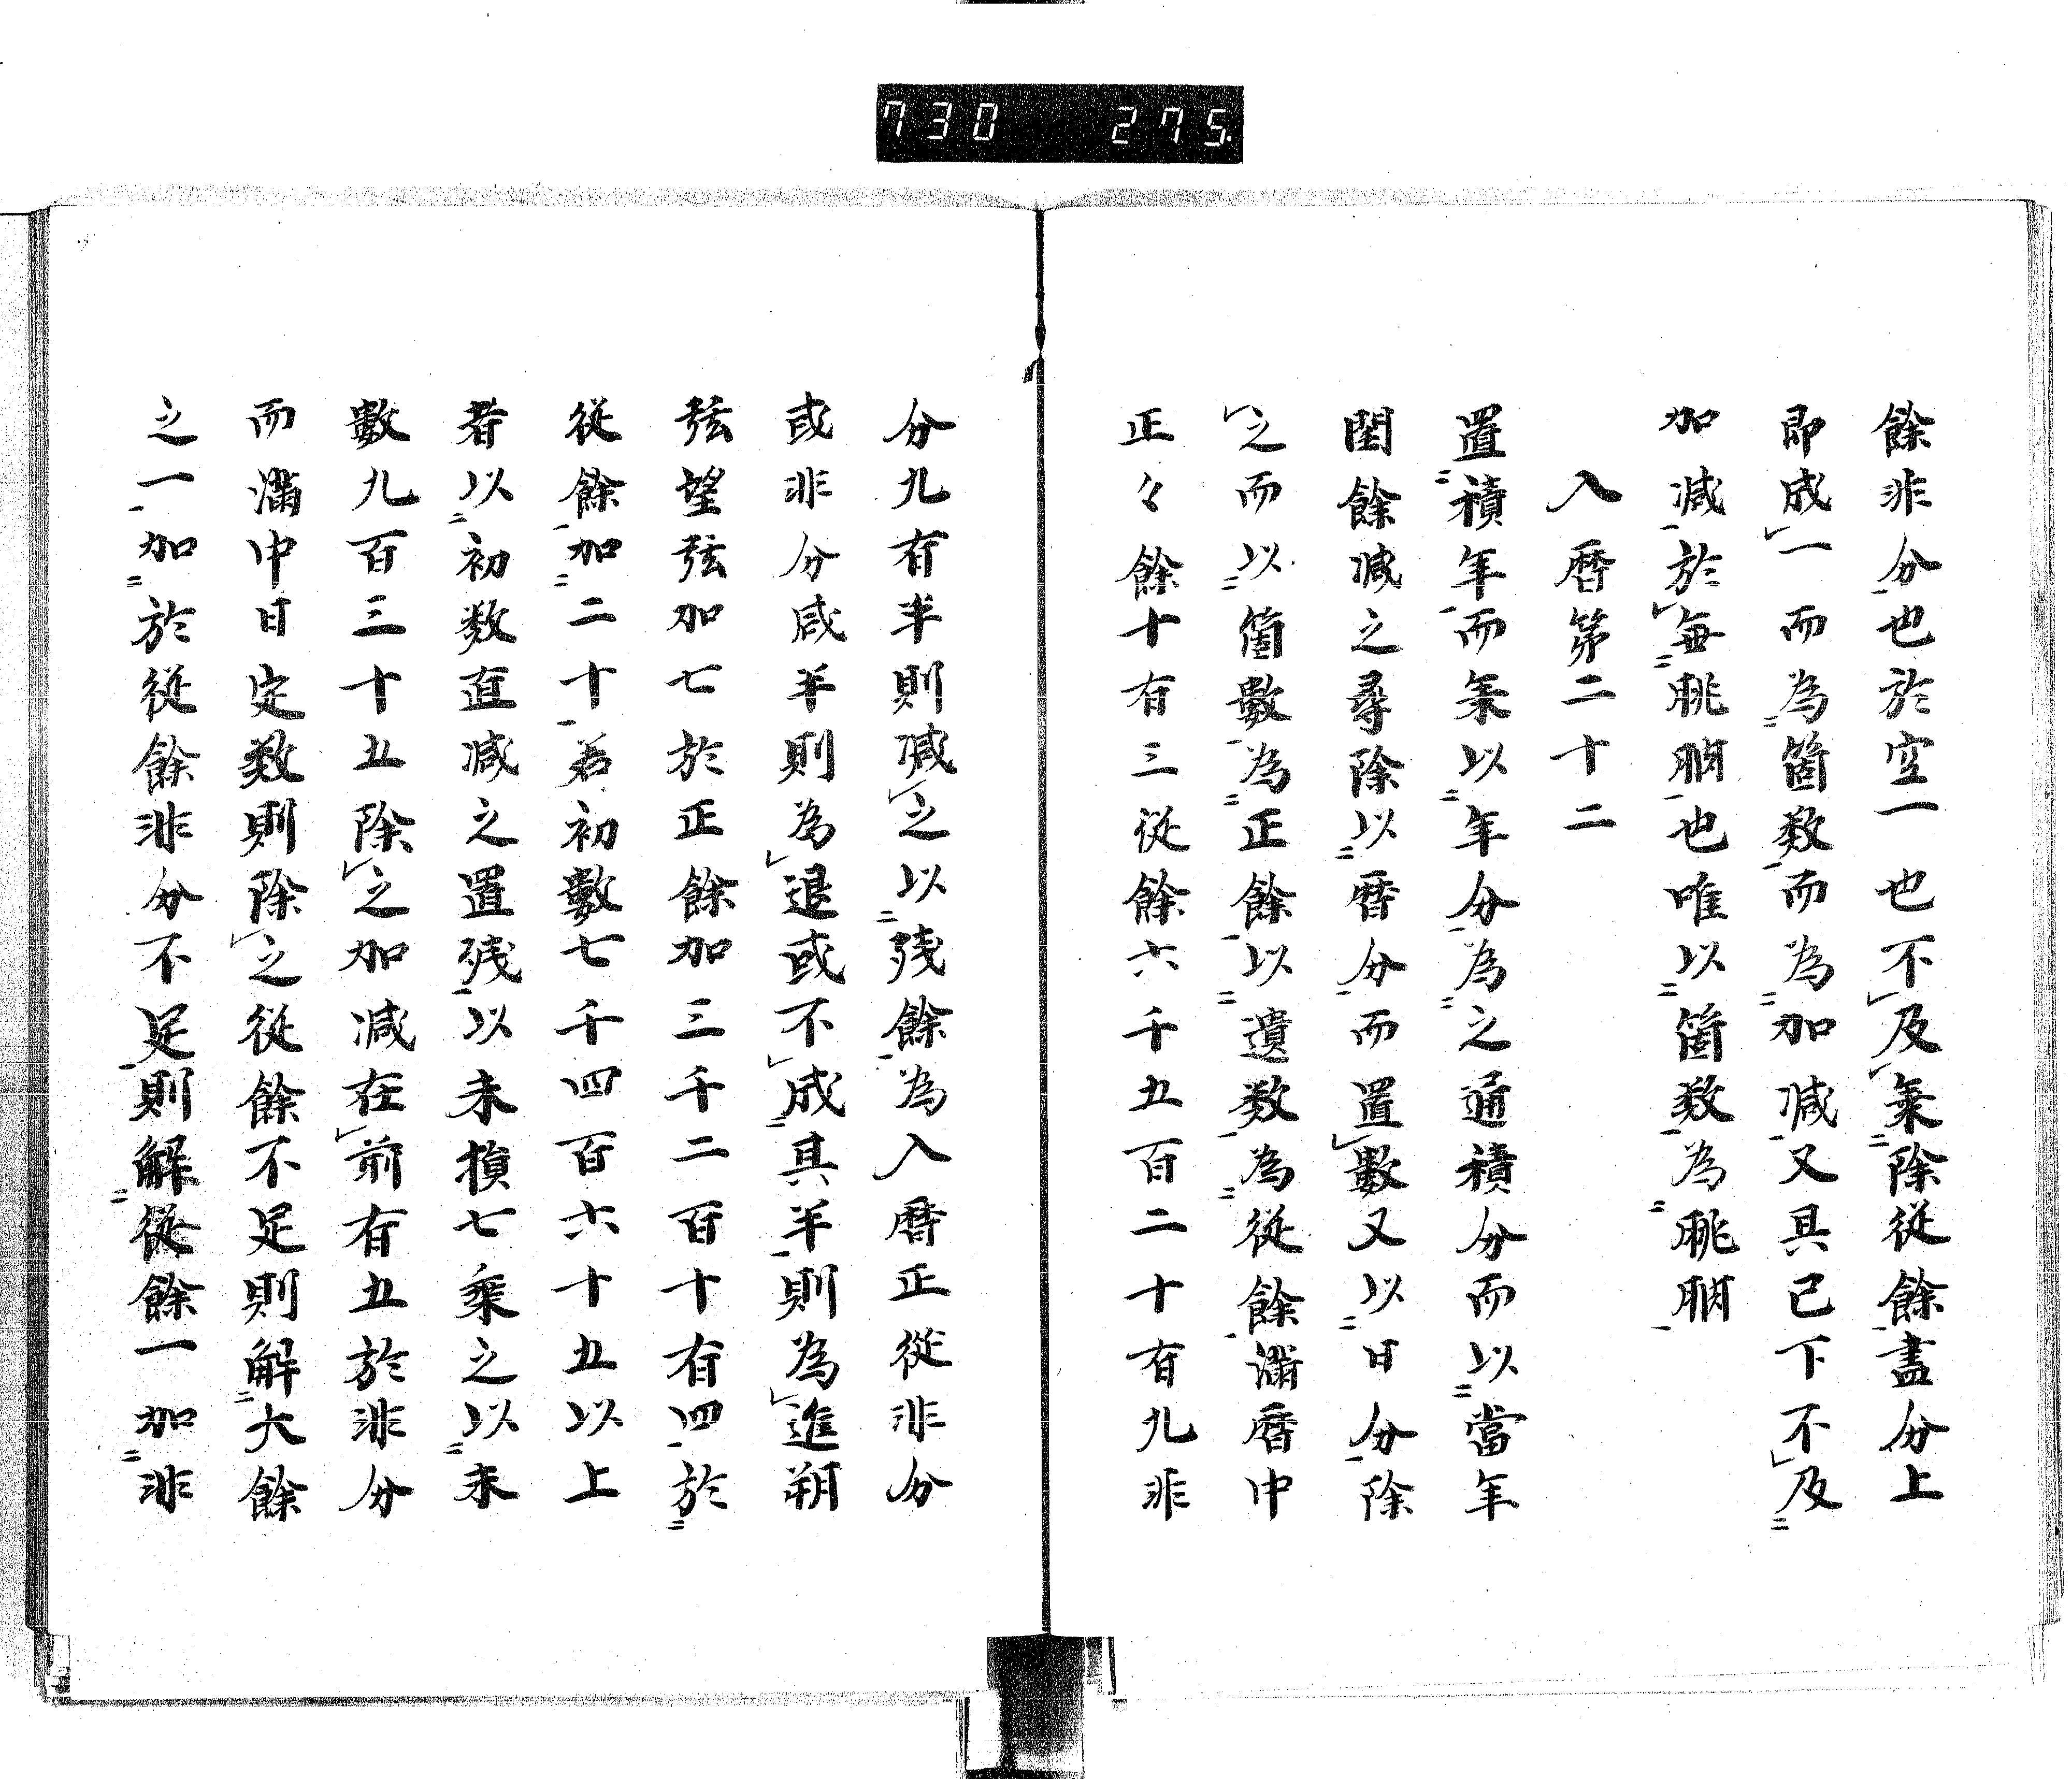 730 275
餘非分也於空一也不及乗除従餘盡分上
即成一而為箇数而為加減又具已下不及
加減於毎朓朒也唯以箇数為朓朒
入暦第二十二
置積年而乗以年分為之通積分而以當年
閏餘減之尋除以暦分而置數又以日分除
之而以箇數為正餘以遺数為従餘滿暦中
正々餘十有三従餘六千五百二十有九非
分九有半則減之以残餘為入暦正従非分
或非分咸半則為退或不成其半則為進朔
弦望弦加七於正餘加三千二百十有四於
従餘加二十若初數七千四百六十五以上
者以初数直减之置残以未損七乗之以末
數九百三十五除之加减在前有五於非分
而滿中日定数則除之従餘不足則解大餘
之一加於従餘非分不足則解従餘一加非